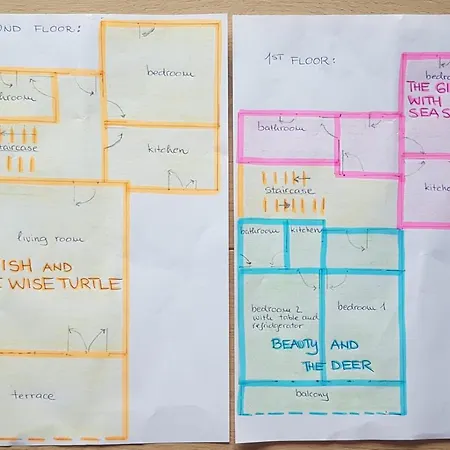 OND FLOOR:
bedroom
hroom
staircase
kitchen
living room
ISH AND
E WISE TURTLE
terrace
1ST FLOOR:
bedro
THE GI
WITH
SEAS
bathroom
kitchen
staircase
bathroom
kitchen
bedroom 2
with table and
refridgerator
bedroom 1
BEAUTY AND
THE DEER
balcony